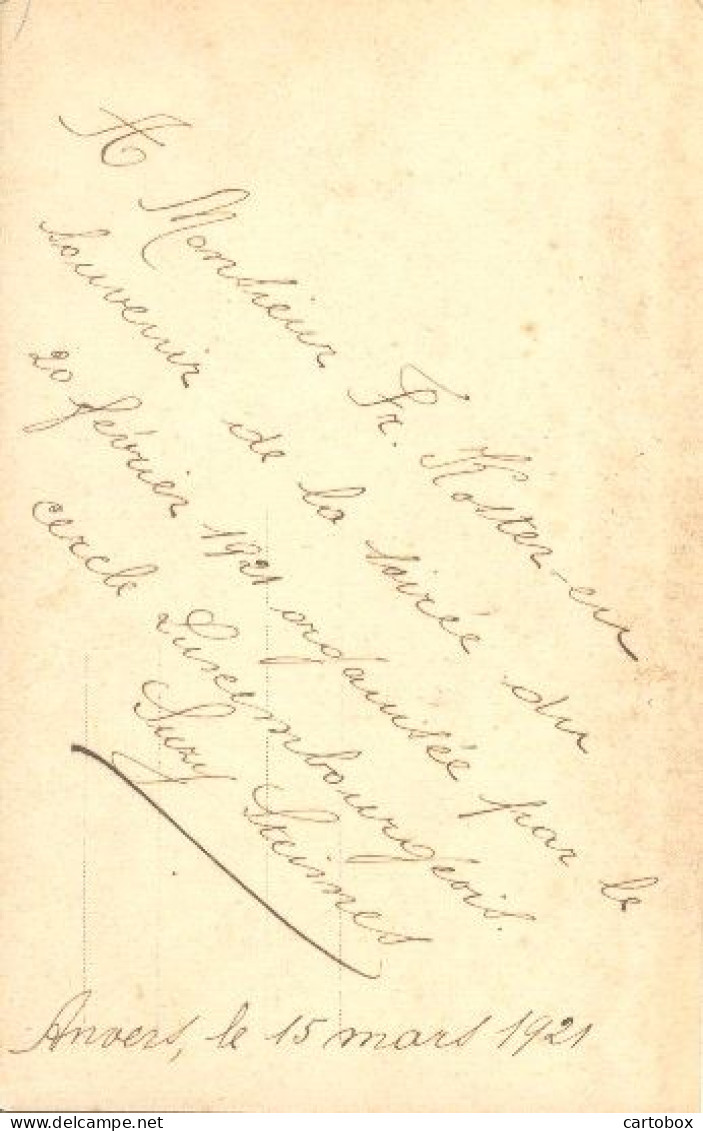 A
Monsieur Fr. Koster - en
souvenir de la soirée du
20 février 1921 organisée par le
cercle Luxembourgeois.
Suzy
Anvers, le 15 mars 1921
cartobox